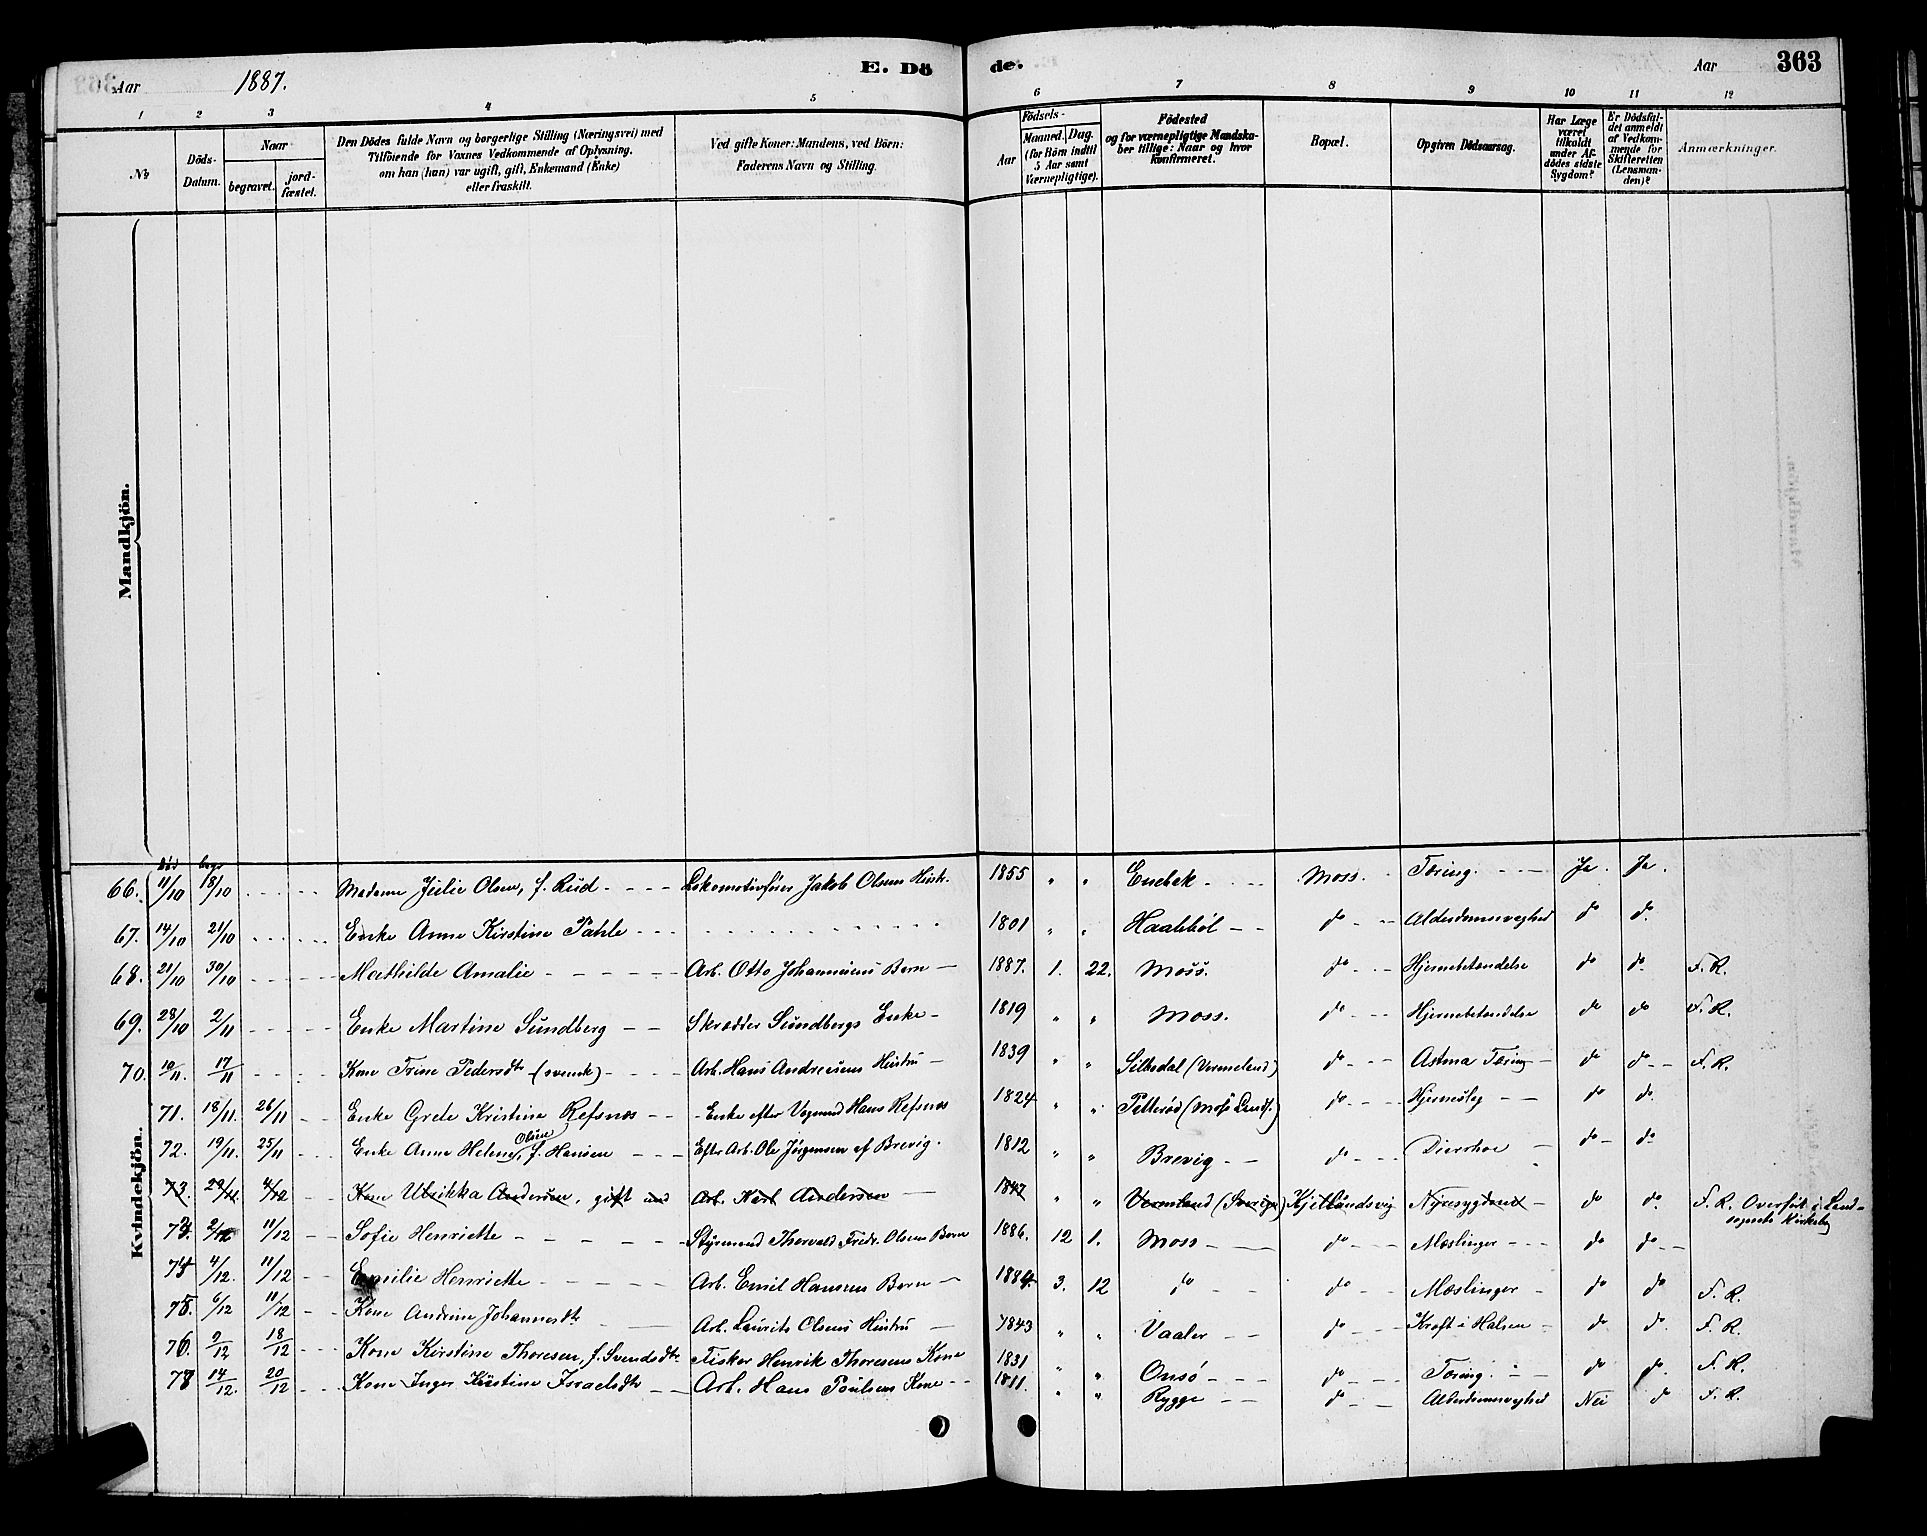 Aar 1887. E. Dö de. Aar 363
1 2 3 4 5 6 7 8 9 10 11 12
No
Döds-Datum.
Naar
begravet. jord-fæstet.
Den Dödes fulde Navn og borgerlige Stilling (Næringsvei) med
Tilföiende for Voxnes Vedkommende af Oplysning,
om han (hun) var ugift, gift, Enkemand (Enke)
eller fraskilt.
Ved gifte Koner: Mandens, ved Börn:
Faderens Navn og Stilling.
Födsels-
Aar
Maaned. Dag.
(for Börn indtil
5 Aar samt
Værnepligtige).
Födested
og for værnepligtige Mandska-
ber tillige: Naar og hvor
konfirmeret.
Bopæl.
Opgiven Dödsaarsag.
Har Læge
været
tilkaldt
under Af-
dödes sidste
Sygdom?
Er Dödsfal-
det anmeldt
af Vedkom-
mende for
Skifteretten
(Lensman-
den)?
Anmærkninger.
Mandkjön.
Kvindekjön.
Död begr
66. 11/10 18/10 Madame Julie Olsen, f. Rud Lokomotivfører Jakob Olsens Hustr. 1855 " " Enebak Moss Tæring. Ja. Ja.
67. 14/10 21/10 Enke Anne Kirstine Pahle 1801 " " Haabøl do Alderdomssvaghed do do
68. 21/10 30/10 Mathilde Amalie Arb. Otto Johannesens Barn 1887. 1. 22. Moss. do Hjernebetændelse do do F. R.
69. 28/10 2/11 Enke Martine Sundberg Skrædder Sundbergs Enke 1819 " " Moss. do Hjernebetændelse do do F. R.
70. 10/11. 17/11 Kone Trine Pedersdtr (svensk) Arb. Hans Andreasens Hustru 1839 " " Silbodal (Vermeland) do Astma Tæring do do F. R.
71. 18/11. 26/11 Enke Grete Kristine Refsnæs Enke efter Vognmd Hans Refsnæs 1824 " " Pelterød (Moss Lands.) do Hjerneslag do do
72. 19/11. 25/11 Enke Anne Helene Olsen, f. Hansen Efter Arb. Ole Jørgensen af Brevig. 1812 " " Brevig do Diarrhoe do do
73. 29/11 4/12 Kone Ulrikka Andersen, gift med Arb. Karl Andersen 1847 " " Vermland (Sverige) Kjellandsvig Nyresygdom do do F. R. Overført i Land-
sognets Kirkebog
73. 2/12 11/12 Sofie Henriette Styrmand Thorvald Fredr. Olsens Barn 1886. 12 1. Moss do Mæslinger do do
74 4/12. 11/12 Emilie Henriette Arb. Emil Hansens Barn 1884. 3. 12 do do Mæslinger do do F. R.
75. 6/12 11/12 Kone Andrine Johannesdtr Arb. Laurits Olsens Hustru 1843 " " Vaaler do Kræft i Halsen do do F. R.
76. 9/12 18/12 Kone Kirstine Thoresen, f. Svendsdtr Fisker Henrik Thoresens Kone 1831 " " Onsø do Tæring do do F. R.
78 14/12. 20/12 Kone Inger Kirstine Israelsdtr Arb. Hans Poulsens Kone 1811. " " Rygge do Alderdomssvaghed Nei do F. R.